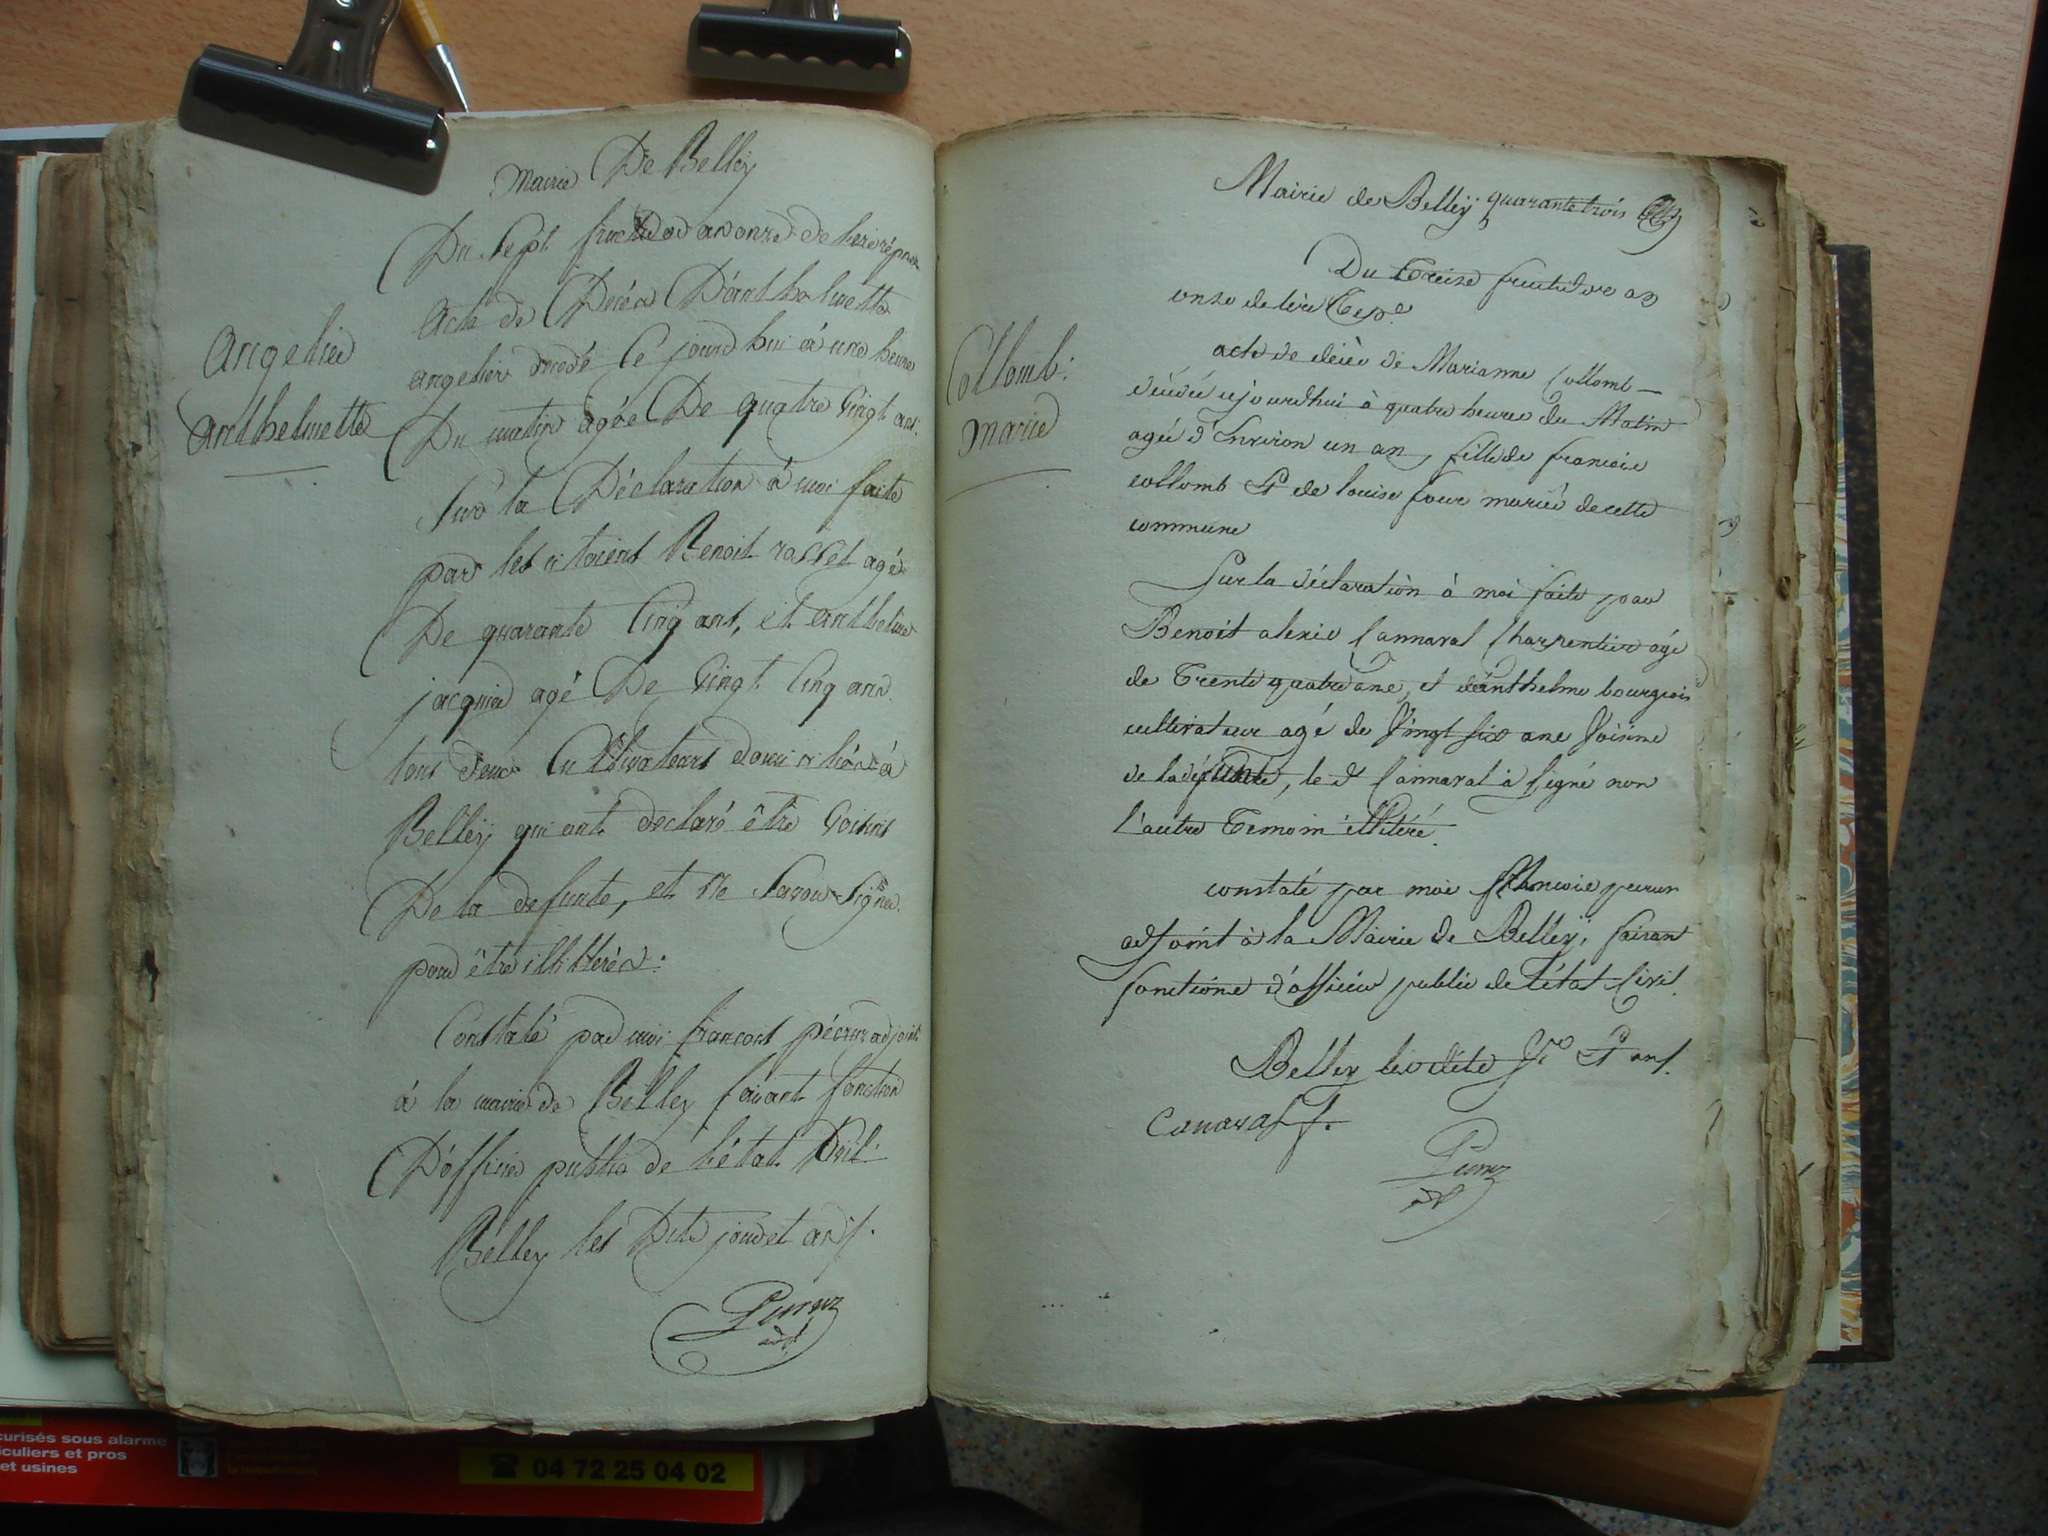 Mairie De Belley
Du Sept fructidor an onze de l'ere répne
Acte de Décés D'anthelmette
Angelier
angelier décédé Ce jourd hui á une heure
Anthelmette
Du matin agée De quatre Vingt ans.
Sur la Déclaration á moi faite
par les citoiens Benoit rosset agé
De quarante Cinq ans, et anthelme
jacquier agé De Vingt Cinq ans
tous deux Cultivateurs domiciliés á
Belleÿ qui ont déclaré être Voisins
De la defunte, et ne Savoir Signer
pour être illitterés.
Constaté par moi francois pécruz adjoint
á la mairie de Belley faisant fonction
D'officier public de l'état Civil.
Belley les Dits jour et an
adj
Mairie de Belleÿ quarante trois
Du Treize fructidor an
onze de l'ère Rep.e
acte de décès de Marianne Collomb
Collomb.
décédée cejourdhui à quatre heures du Matin
Marie
agée d'Environ un an, fille de francois
collomb & de louise four mariés de cette
commune
Sur la déclaration à moi faite par
Benoit alexis Cannaval Charpentier âgé
de Trente quatre ans, et d'anthelme bourgeois
cultivateur agé de Vingt six ans Voisins
de la défunte, le d Cannaval à signé non
l'autre Temoin illitéré.
constaté par moi francois pecruz
adjoint à la Mairie de Belley, faisan
fonctions d'officier public de l'état Civil.
Belley lesdits Jr & an
adj
curisés sous alarme
iculiers et pros
et usines
04 72 25 04 02